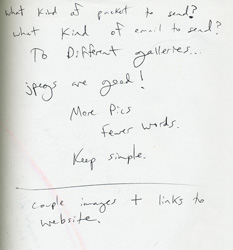 what kind of packet to send?
what kind of email to send?
To Different galleries...
jpegs are good!
More Pics
fewer words.
Keep simple.
couple images + links to
website.